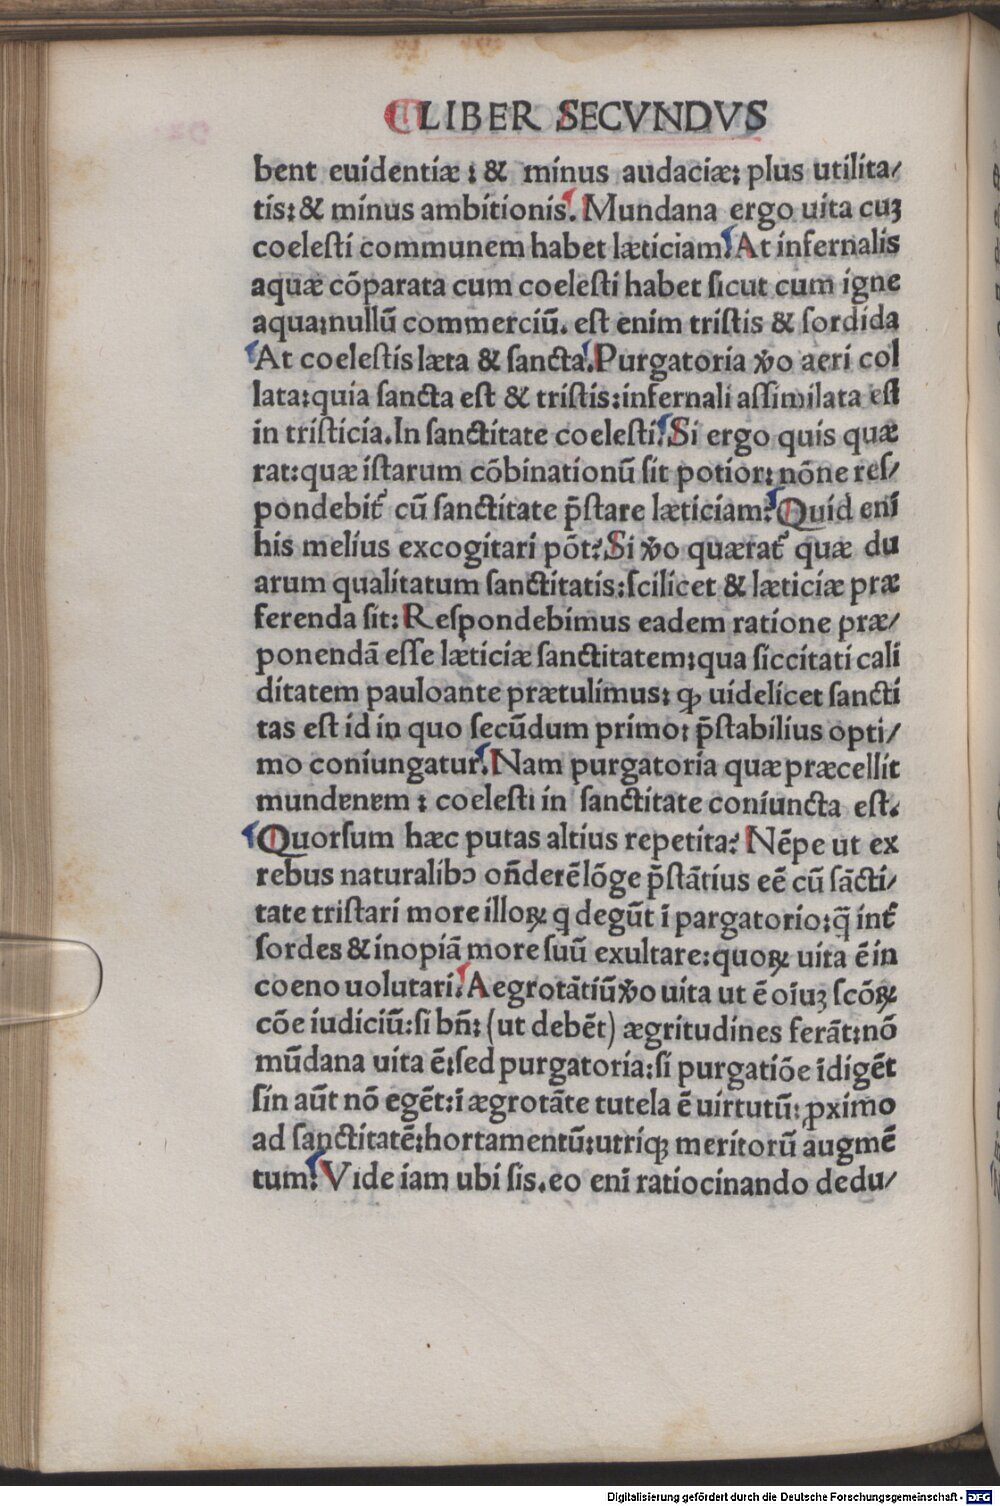 LIBER SECVNDVS
bent euidentiæ: & minus audaciæ: plus utilita/
tis: & minus ambitionis. Mundana ergo uita cuꝫ
coelesti communem habet læticiam. At infernalis
aquæ cõparata cum coelesti habet sicut cum igne
aqua: nullũ commerciũ. est enim tristis & sordida
At coelestis læta & sancta. Purgatoria v̾o aeri col
lata: quia sancta est & tristis: infernali assimilata est
in tristicia. In sanctitate coelesti. Si ergo quis quæ
rat: quæ istarum cõbinationũ sit potior: nõne res/
pondebit᷑ cũ sanctitate p̃stare læticiam? Quid enī
his melius excogitari põt? Si v̾o quærat᷑ quæ du
arum qualitatum sanctitatis: scilicet & læticiæ præ
ferenda sit: Respondebimus eadem ratione præ/
ponendã esse læticiæ sanctitatem: qua siccitati cali
ditatem pauloante prætulimus: ꝙ uidelicet sancti
tas est id in quo secũdum primo: p̃stabilius opti/
mo coniungatur. Nam purgatoria quæ præcellit
mundenem: coelesti in sanctitate coniuncta est.
Quorsum hæc putas altius repetita? Nẽpe ut ex
rebus naturalibꝰ on̄derẽ lõge p̃stãtius eẽ cũ sãcti/
tate tristari more illoꝝ q degũt ī pargatorio: q̃ int᷑
sordes & inopiã more suũ exultare: quoꝝ uita ẽ in
coeno uolutari. Aegrotãtiũ v̾o uita ut ẽ oīuꝫ scõꝝ
cõe iudiciũ: si bn̄: (ut debẽt) ægritudines ferãt: nõ
mũdana uita ẽ: sed purgatoria: si purgatiõe īdigẽt
sin aũt nõ egẽt: ī ægrotãte tutela ẽ uirtutũ: ꝓximo
ad sanctitatẽ: hortamentũ: utriqꝫ meritorũ augmẽ
tum. Vide iam ubi sis. eo enī ratiocinando dedu/
Digitalisierung gefördert durch die Deutsche Forschungsgemeinschaft - DFG